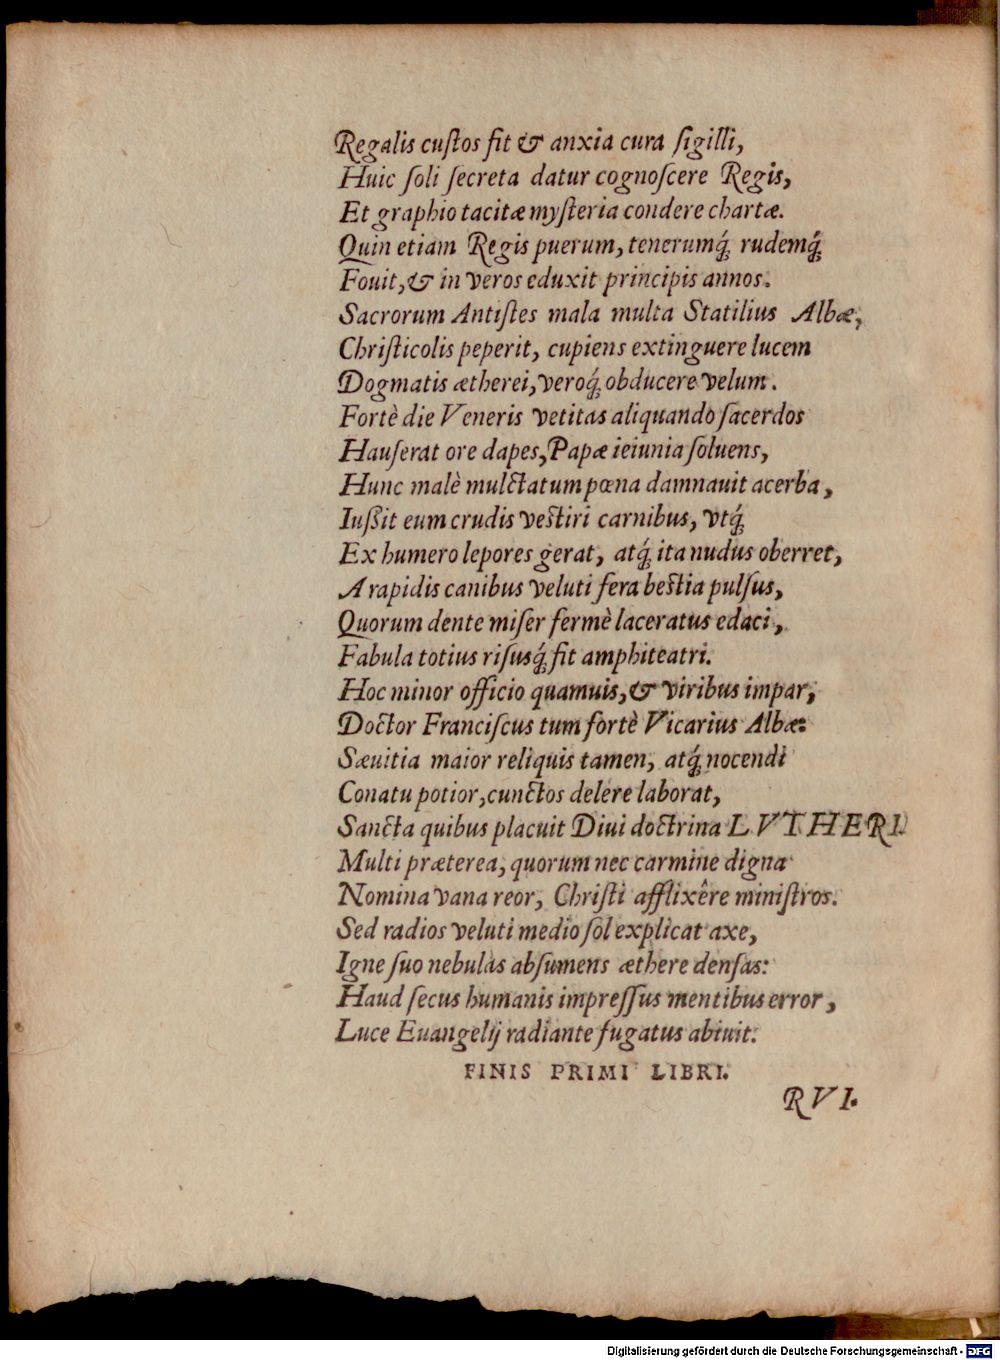 Regalis cuſtos fit & anxia cura ſigilli,
Huic ſoli ſecreta datur cognoſcere Regis,
Et graphio tacitæ myſteria condere chartæ.
Quin etiam Regis puerum, tenerumq́; rudemq́;
Fouit, & in veros eduxit principis annos.
Sacrorum Antiſtes mala multa Statilius Albæ,
Chriſticolis peperit, cupiens extinguere lucem
Dogmatis ætherei, veroq́; obducere velum.
Fortè die Veneris vetitas aliquando ſacerdos
Hauſerat ore dapes, Papæ ieiunia ſoluens,
Hunc malè mulctatum pœna damnauit acerba,
Iuſsit eum crudis veſtiri carnibus, vtq́;
Ex humero lepores gerat, atq́; ita nudus oberret,
A rapidis canibus veluti fera beſtia pulſus,
Quorum dente miſer fermè laceratus edaci,
Fabula totius riſusq́; fit amphiteatri.
Hoc minor officio quamuis, & viribus impar,
Doctor Franciſcus tum fortè Vicarius Albæ:
Sæuitia maior reliquis tamen, atq́; nocendi
Conatu potior, cunctos delere laborat,
Sancta quibus placuit Diui doctrina LVTHERI.
Multi præterea, quorum nec carmine digna
Nomina vana reor, Chriſti afflixêre miniſtros.
Sed radios veluti medio ſol explicat axe,
Igne ſuo nebulas abſumens æthere denſas:
Haud ſecus humanis impreſſus mentibus error,
Luce Euangelij radiante fugatus abiuit.
FINIS PRIMI LIBRI.
RVI.
Digitalisierung gefördert durch die Deutsche Forschungsgemeinschaft - DFG